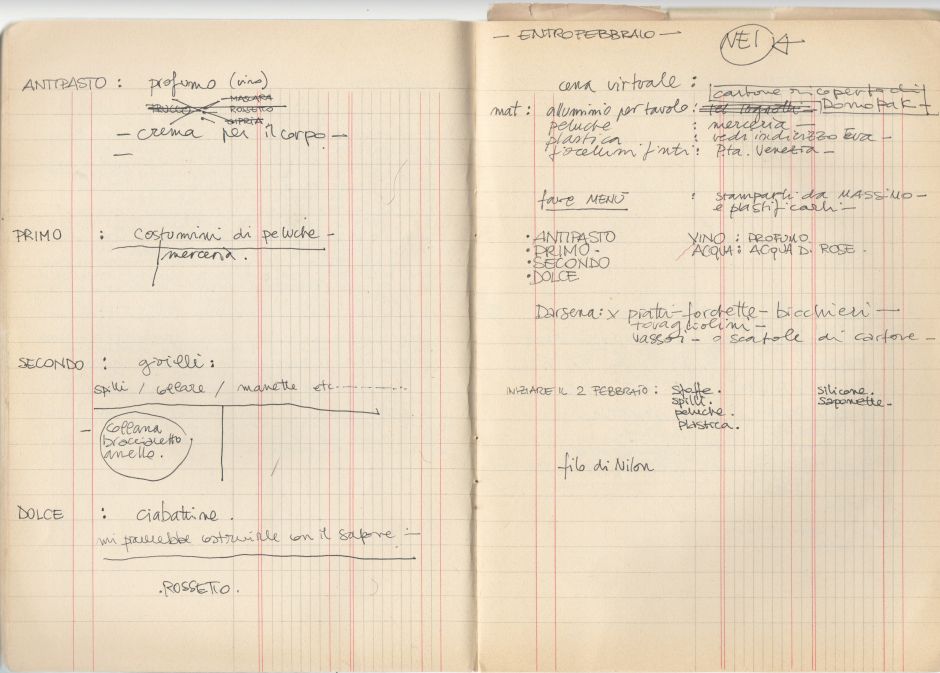 ANTIPASTO : profumo (vino)
TRUCCO MASCARA
ROSSETTO
CIPRIA
— crema per il corpo —
—
PRIMO : Costumini di peluche —
merceria.
SECONDO : gioielli :
spilli / collare / manette etc...........
— collana
braccialetto
anello.
DOLCE : ciabattine .
mi piacerebbe costruirle con il sapone —
.ROSSETTO.
— ENTRO FEBBRAIO —
NEI
cena virtuale : cartone ricoperto di
mat : alluminio per tavolo : Domopak —
peluche : merceria —
plastica : vedi indirizzo Eva —
fiorellini finti : P.ta Venezia —
fare MENÙ : stamparli da MASSIMO —
e plastificarli —
• ANTIPASTO VINO : PROFUMO
• PRIMO ACQUA : ACQUA DI ROSE .
• SECONDO
• DOLCE
Darsena : x piatti - forchette - bicchieri —
tovagliolini —
vassoi — o scatole di cartone —
INIZIARE IL 2 FEBBRAIO : stoffe . silicone .
spilli . saponette .
peluche .
plastica .
filo di Nilon